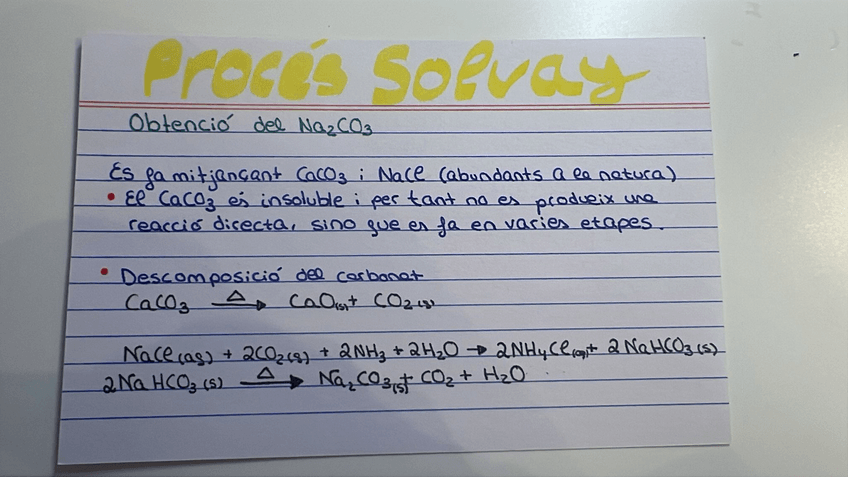 Procés Solvay
Obtenció del Na₂CO₃
Es fa mitjançant CaCO₃ i NaCl (abundants a la natura)
• El CaCO₃ és insoluble i per tant no es produeix una
reacció directa, sino que es fa en varies etapes.
• Descomposició del carbonat
CaCO₃ —Δ→ CaO(s) + CO₂(g)
NaCl(aq) + 2CO₂(g) + 2NH₃ + 2H₂O → 2NH₄Cl(aq) + 2NaHCO₃(s)
2NaHCO₃(s) —Δ→ Na₂CO₃(s) + CO₂ + H₂O